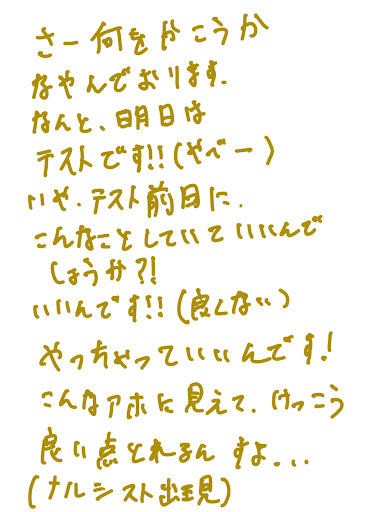 さー何をかこうか
なやんでおります.
なんと、明日は
テストです!!(やべー)
いや.テスト前日に.
こんなことしていていいんで
しょうか?!
いいんです!!(良くない)
やっちゃっていいんです!
こんなアホに見えて.けっこう
良い点とれるんすよ...
(ナルシスト出現)